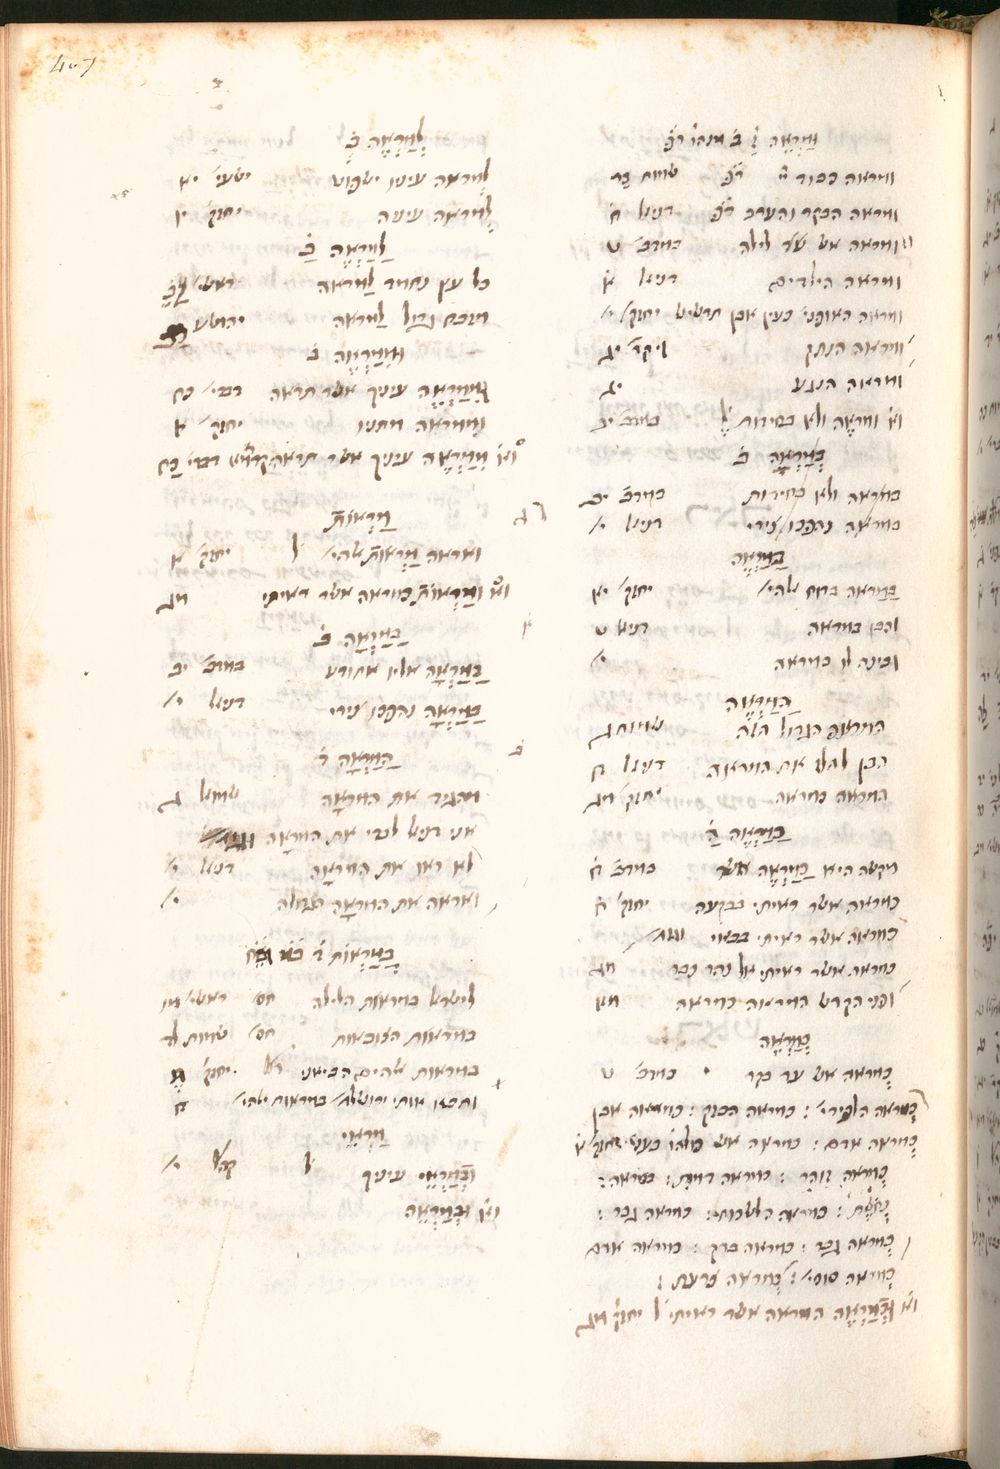 407
ומראה כבוד יי ר״פ שמות כד
ומראה הבקר והערב ר״פ דניאל ח
ומראה אש עד לילה במדב׳ ט
ומראה הילדים דניאל א
ומראה האופני׳ כעין אבן תרשיש יחזק׳ י׳
ומראה הנתק ויקר׳ יג
ומראה הנגע יג
וא׳ ומראה ולא בחידות ל׳ במדב׳ יב
במראה ב
במראה ולא בחידות במדב׳ יב
במראה נהפכו צירי דניאל י׳
במראה
במראה ברוח אלהי׳ יחזק׳ יא
והבן במראה דניאל ט
ובינה לו במראה י׳
המראה
המראה הגדול הזה שמות ג
הבן להלז את המראה דניאל ח
המראה כמראה יחזק׳ מג
כמראה ה
מקשה היא כמראה אשר במדב׳ ח
כמראה אשר ראיתי בבקעה יחזק׳ ח
כמראה אשר ראיתי בבאי
כמראה אשר ראיתי אל נהר כבר מג
ופני הקדש המראה כמראה מא
כמראה
כמראה אש עד בקר במדב׳ ט
כמראה הלפידי׳ : כמראה הבזק : כמראה אבן
כמראה אדם : כמראה אש
כמראה זוהר : כמראה דמות :
נחשת : כמראה הלשכות : כמראה גבר :
כמראה גבר : כמראה ברק : כמראה אדם
כמראה סוסי׳ : כמראה צרעת :
וא׳ וכמראה המראה אשר ראיתי ל׳ יחזק׳ מג
למראה ב
למראה עיניו ישפוט ישעי׳ יא
למראה עיניה יחזק׳
למראה ב
כל עץ נחמד למראה ראשי׳ ב
מזבח גדול למראה יהושע
וממראה ב
וממראה עיניך אשר תראה דברי׳ כח
וממראה מתניו יחזק׳ א
וא׳ ממראה עיניך אשר תראה דברי׳ כח
מראות
ואראה מראות אלהי׳ ל׳ יחזק׳ א
וא׳ ומראות כמראה אשר ראיתי מג
במראה ב
במראה אליו אתודע במדב׳ יב
במראה נהפכו צירי דניאל י׳
המראה ד
מהגיד את המראה שמואל ג
אני דניאל לבדי את המראה
לא ראו את המראה דניאל י׳
ואראה את המראה הגדולה י׳
במראות ד
לישראל במראות הלילה חס׳ ראשי׳ מו
במראות הצובאות חס׳ שמות לח
במראות אלהים הביאני יחזק׳ מ
ותבא אותי ירושלם במראות אלהי׳ ח
מראי
ובמראי עיניך ל׳ קהל׳ י׳
וא׳ ובמראה